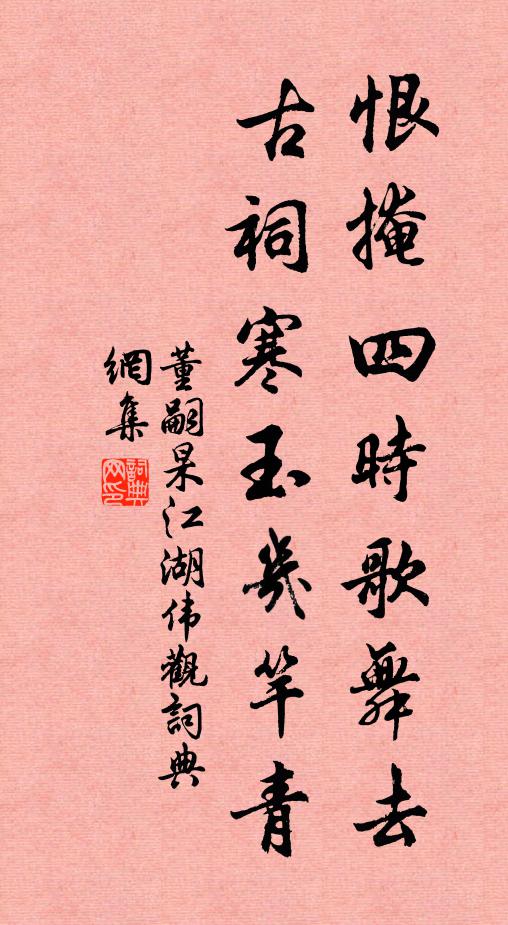 恨掩四時歌舞去
古祠寒玉幾竿青
董嗣杲江湖伟觀詞典
網集
詞典网印